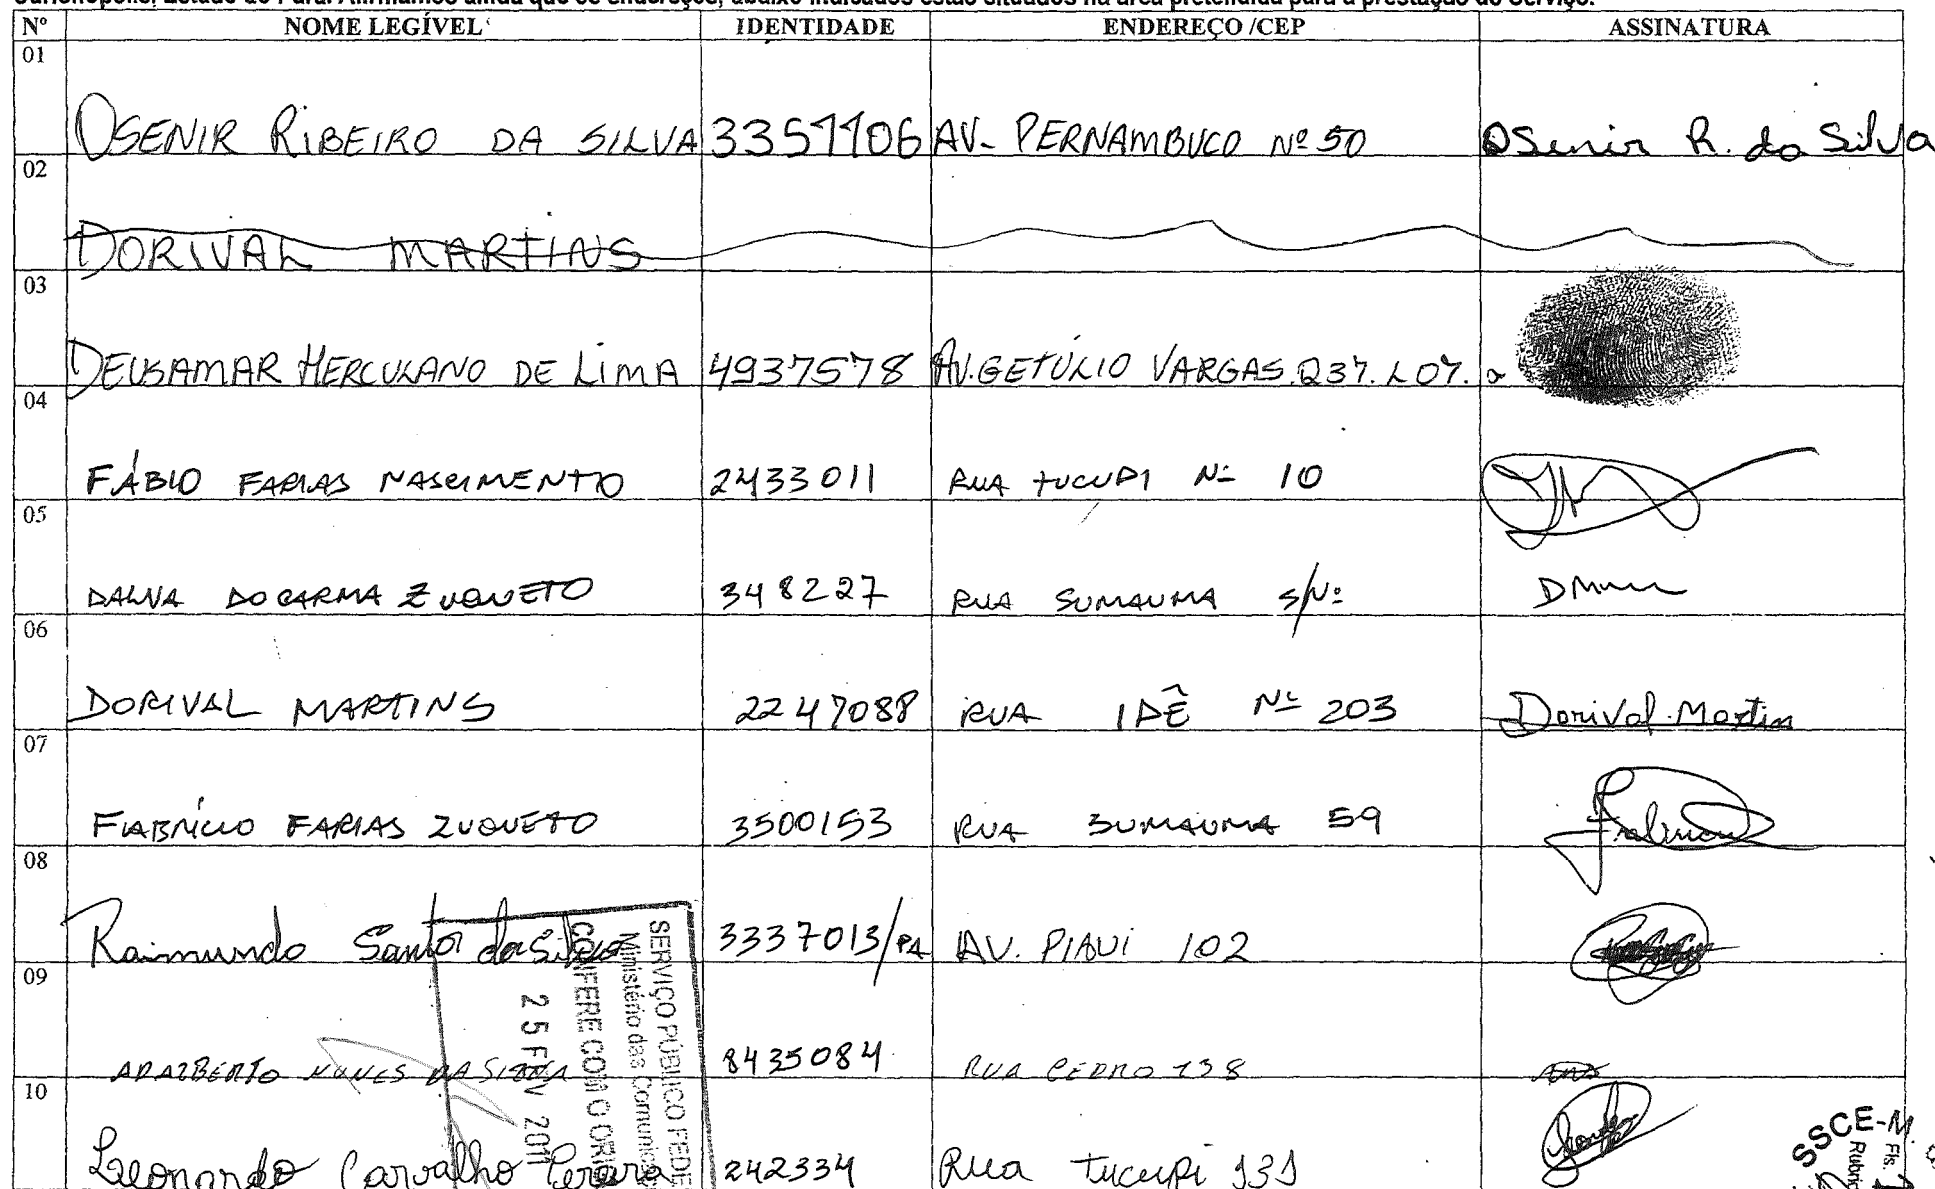 Curionópolis, Estado do Pará. Afirmamos ainda que os endereços, abaixo indicados estão situados na área pretendida para a prestação do Serviço.
Nº NOME LEGÍVEL IDENTIDADE ENDEREÇO /CEP ASSINATURA
01
OSENIR RIBEIRO DA SILVA 3351106 AV- PERNAMBUCO Nº 50 OSenir R. da Silva
02
DORIVAL MARTINS
03
DEUSAMAR HERCULANO DE LIMA 4937578 AV.GETÚLIO VARGAS.Q37.L07.
04
FÁBIO FARIAS NASCIMENTO 2433011 RUA TUCUPI Nº 10
05
DALVA DO CARMA ZUQUETO 348227 RUA SUMAUMA S/Nº
06
DORIVAL MARTINS 2247088 RUA IPÊ Nº 203 Dorival Martins
07
FABRÍCIO FARIAS ZUQUETO 3500153 RUA SUMAUMA 59
08
Raimundo Santos da Silva 3337013/PA AV. PIAUI 102
09
ADALBERTO NUNES DA SILVA 8435084 RUA CEDRO 138
10
Leonardo Carvalho Pereira 242334 Rua Tucupi 131
SERVIÇO PÚBLICO FEDE
Ministério das Comunic
CONFERE COM O ORI
25 FEV 2011
SSCE-M
Fls.
Rubric